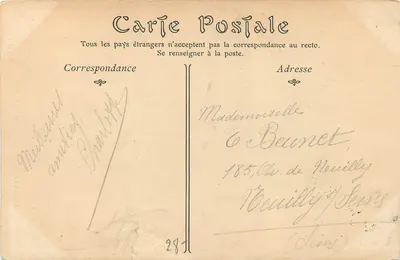 Carte Postale
Tous les pays étrangers n'acceptent pas la correspondance au recto.
Se renseigner à la poste.
Correspondance
Adresse
Meilleures
amitiés
Charlotte
Mademoiselle
185, Av. de Neuilly
Neuilly s/ Seine
(Seine)
281